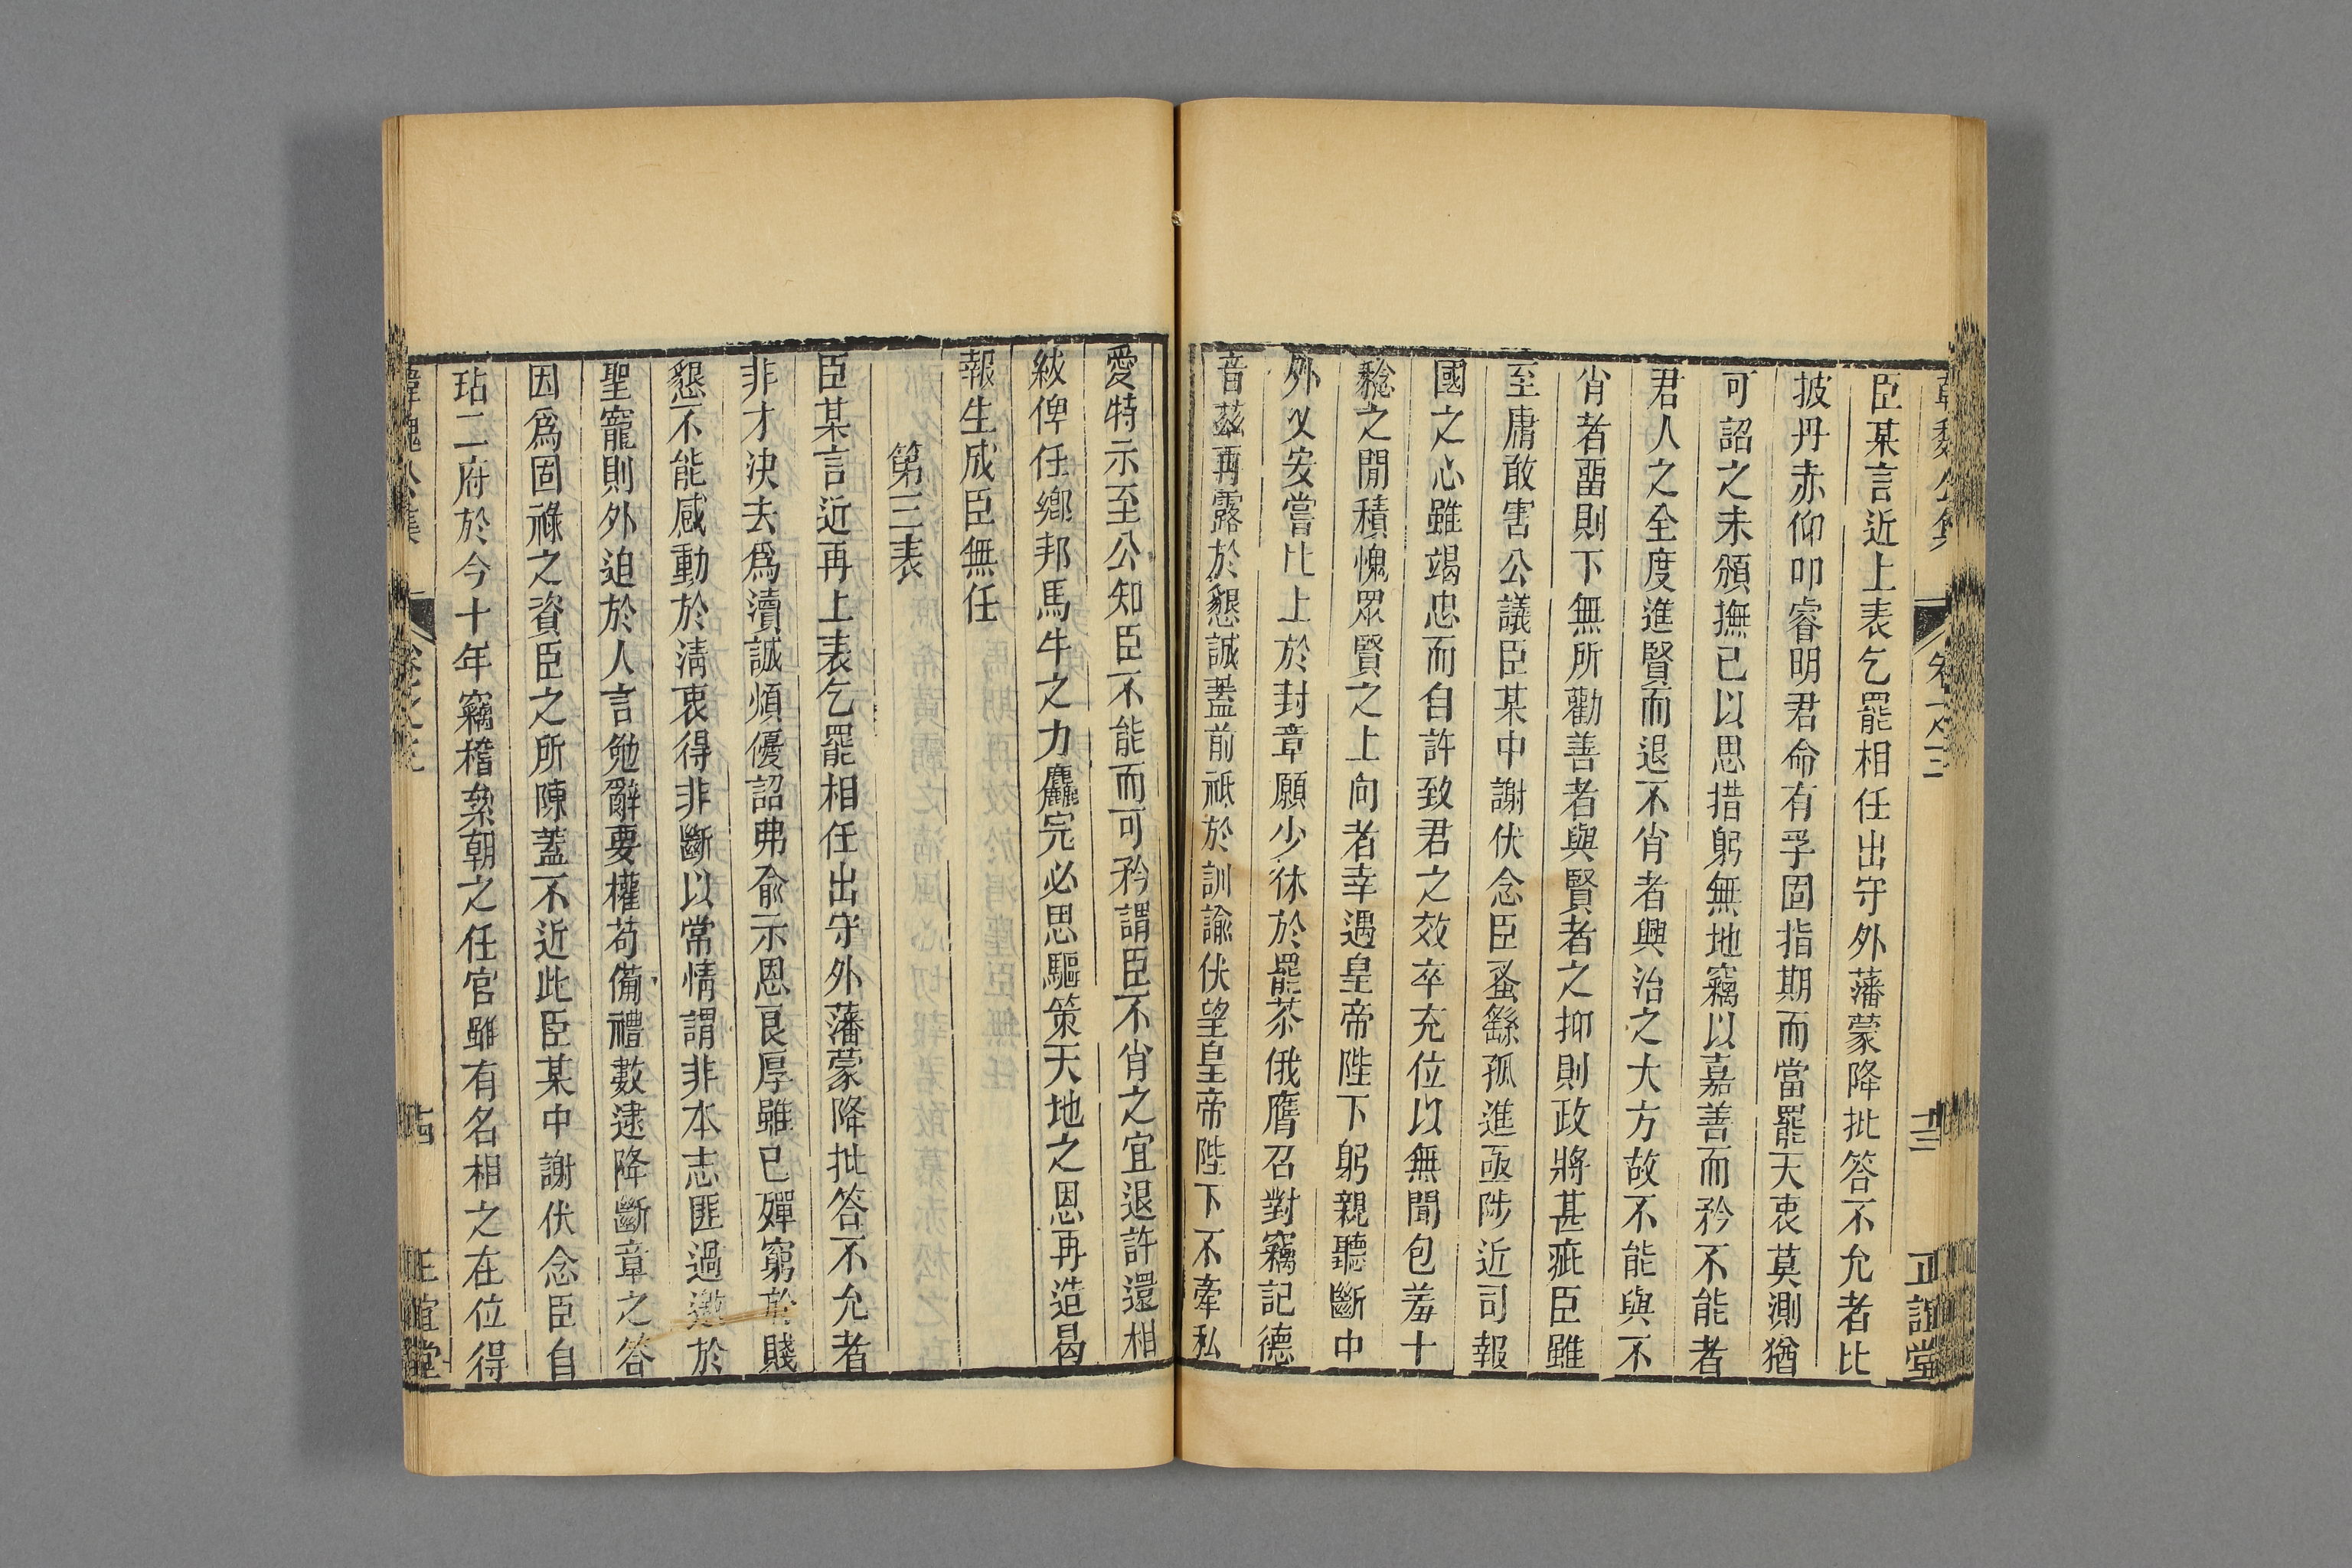 韓魏公集 卷之三 十三 正誼堂
臣某言近上表乞罷相任出守外藩蒙降批答不允者比
披丹赤仰叩睿明君命有孚固指期而當罷天衷莫測猶
可詔之未頒撫已以思措躬無地竊以嘉善而矜不能者
君人之全度進賢而退不肖者興治之大方故不能與不
肖者畱則下無所勸善者與賢者之抑則政將甚疵臣雖
至庸敢害公議臣某中謝伏念臣蚤繇孤進亟陟近司報
國之心雖竭忠而自許致君之效卒充位以無聞包羞十
稔之閒積愧眾賢之上向者幸遇皇帝陛下躬親聽斷中
外乂安嘗比上於封章願少休於罷苶俄膺召對竊記德
音茲再露於懇誠蓋前祇於訓諭伏望皇帝陛下不牽私
愛特示至公知臣不能而可矜謂臣不肖之宜退許還相
紱俾任鄉邦馬牛之力麤完必思驅策天地之恩再造曷
報生成臣無任
第三表
臣某言近再上表乞罷相任出守外藩蒙降批答不允者
非才決去爲瀆誠煩優詔弗俞示恩良厚雖已殫窮於賤
懇不能感動於淸衷得非斷以常情謂非本志匪過邀於
聖寵則外迫於人言勉辭要權苟備禮數逮降斷章之答
因爲固祿之資臣之所陳蓋不近此臣某中謝伏念臣自
玷二府於今十年竊稽累朝之任官雖有名相之在位得
韓魏公集 卷之三 十四 正誼堂